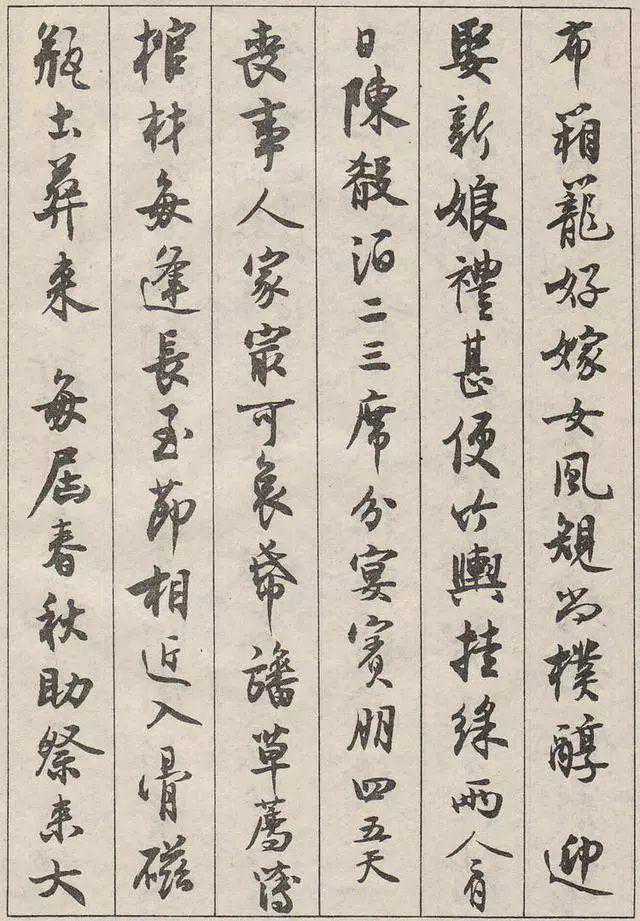 布箱籠好嫁女風規尚樸醇 迎
娶新娘禮甚便竹輿挂綵兩人肩
日陳殽泊二三席分宴賓朋四五天
喪事人家冣可哀草薦薄
棺材每逢長至節相近入骨磁
瓶土葬来 每屆春秋助祭来大